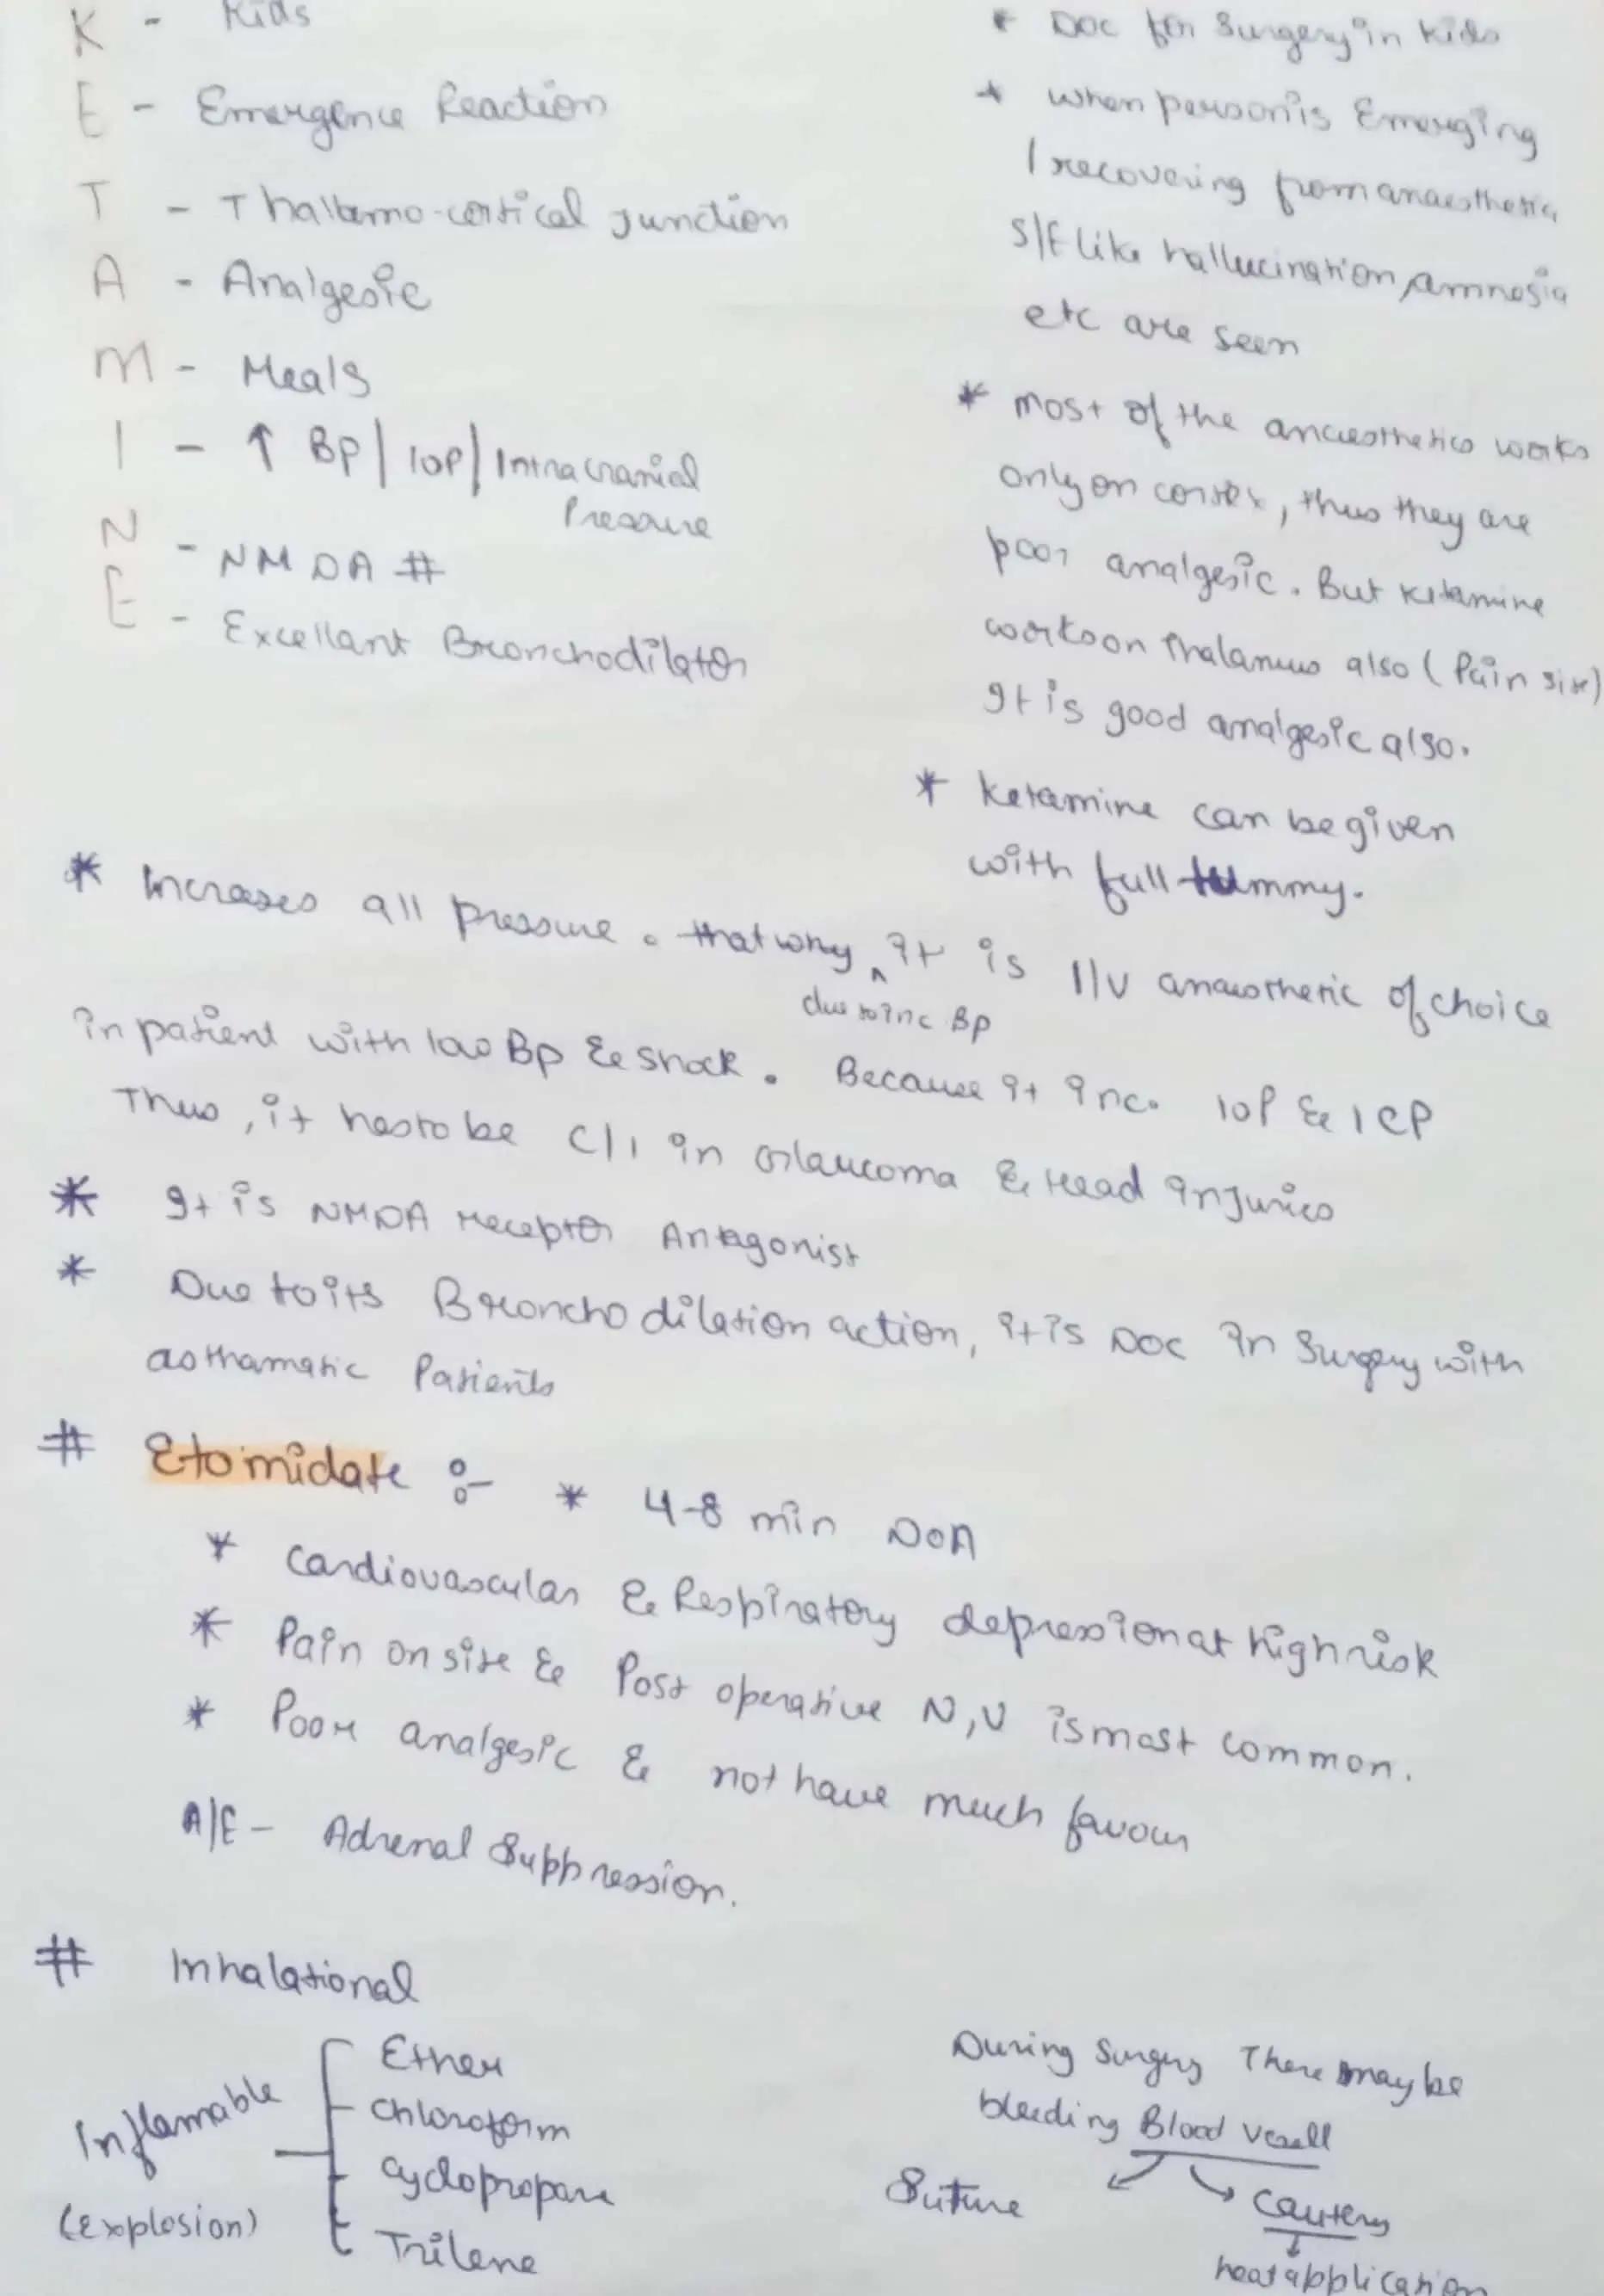 K - Kids
E - Emergence Reaction
T - Thallamo-cortical junction
A - Analgesic
M - Meals
I - ↑ BP | IOP | Intracranial
Pressure
N - NMDA #
E - Excellant Bronchodilator
* DOC for Surgery in Kids
* when person is Emerging
/ recovering from anaesthetia
S/E like hallucination, amnesia
etc are seen
* most of the anaesthetics works
only on cortex, thus they are
poor analgesic. But ketamine
works on Thalamus also (Pain site)
It is good analgesic also.
* Ketamine can be given
with full tummy.
* Increases all pressure. that why ^ it is I/V anaesthetic of choice
due to inc BP
in patient with low BP & Shock. Because it inc. IOP & ICP
Thus, it has to be C/I in Glaucoma & Head Injuries
* It is NMDA receptor Antagonist
* Due to its Broncho dilation action, it is DOC in Surgery with
asthamatic Patients
# Etomidate :- * 4-8 min DOA
* Cardiovascular & Respiratory depression at high risk
* Pain on site & Post operative N,V is most common.
* Poor analgesic & not have much favour
A/E - Adrenal Suppression.
# Inhalational
Inflamable
(explosion)
Ether
Chloroform
Cyclopropane
Trilene
During Surgery There may be
bleeding Blood Vesell
Suture
Cautery
heat application